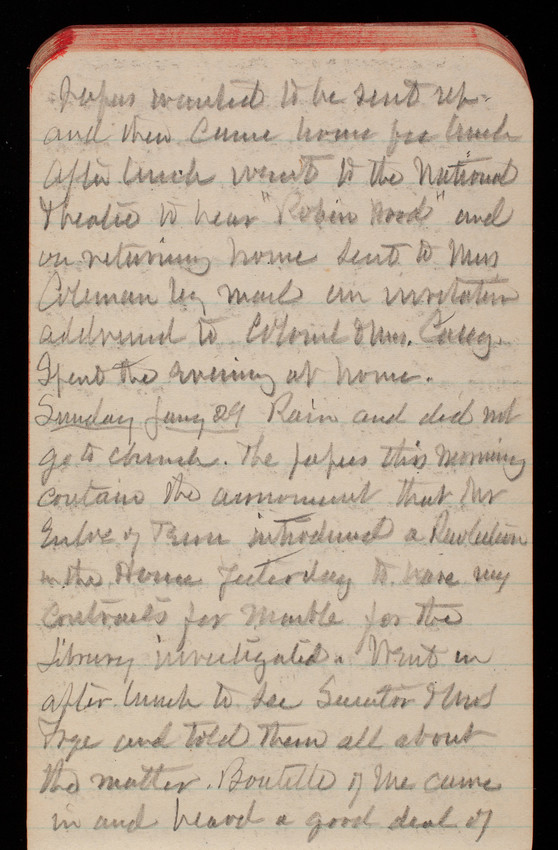 papers wanted to be sent up
and then came home for lunch
After lunch went to the National
Theatre to hear "Robin Hood" and
on returning home sent to Mrs
Coleman by mail an invitation
addressed to Colonel & Mrs. Casey.
Spent the evening at home.
Sunday Jany 29 Rain and did not
go to church. The papers this morning
contain the announcement that Mr
Enloe of Tenn introduced a Resolution
in the House yesterday to have my
contracts for marble for the
Library investigated. Went in
after lunch to see Senator & Mrs
Frye and told them all about
the matter. Boutelle of Me came
in and heard a good deal of